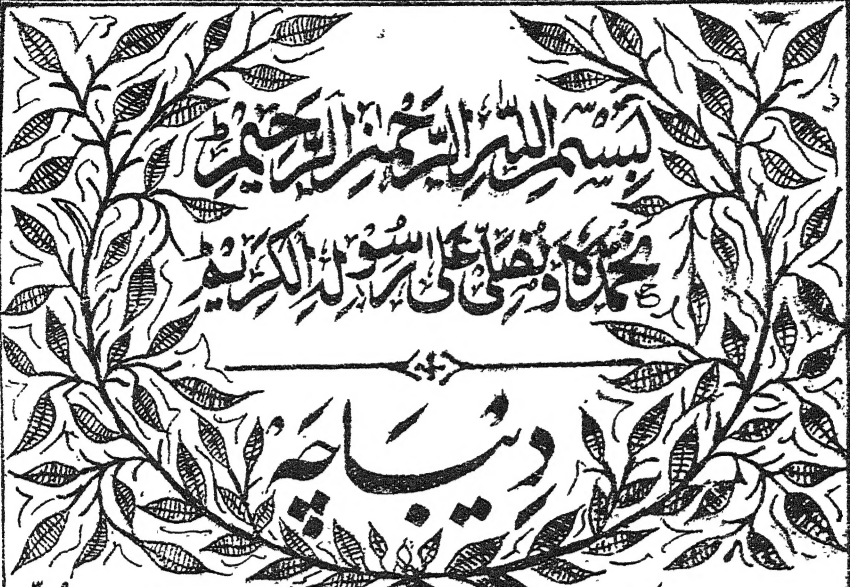 بِسْمِ اللّٰهِ الرَّحْمٰنِ الرَّحِيْمِ
نَحْمَدُهٗ وَنُصَلِّیْ عَلٰی رَسُوْلِهِ الْكَرِيْمِ
دِیْبَاچَہ